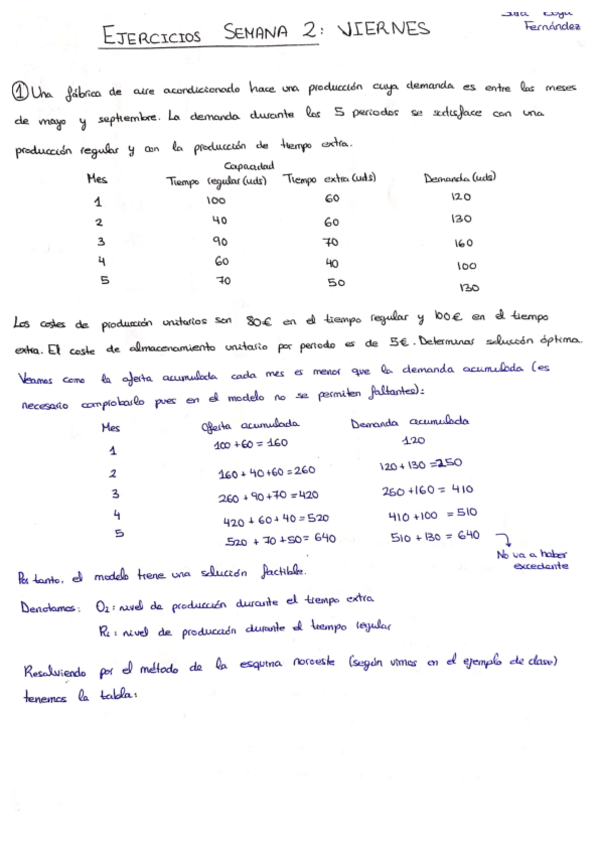 Fernández
EJERCICIOS SEMANA 2: VIERNES
① Una fábrica de aire acondicionado hace una producción cuya demanda es entre los meses
de mayo y septiembre. La demanda durante los 5 periodos se satisface con una
producción regular y con la producción de tiempo extra.
Capacidad
Mes Tiempo regular (uds) Tiempo extra (uds) Demanda (uds)
1 100 60 120
2 40 60 130
3 90 70 160
4 60 40 100
5 70 50 130
Los costes de producción unitarios son 80€ en el tiempo regular y 100€ en el tiempo
extra. El coste de almacenamiento unitario por periodo es de 5€. Determinar solución óptima.
Veamos como la oferta acumulada cada mes es menor que la demanda acumulada (es
necesario comprobarlo pues en el modelo no se permiten faltantes):
Mes Oferta acumulada Demanda acumulada
1 100 + 60 = 160 120
2 160 + 40 + 60 = 260 120 + 130 = 250
3 260 + 90 + 70 = 420 250 + 160 = 410
4 420 + 60 + 40 = 520 410 + 100 = 510
5 520 + 70 + 50 = 640 510 + 130 = 640
No va a haber
excedente
Por tanto, el modelo tiene una solución factible.
Denotamos: Oi: nivel de producción durante el tiempo extra
Ri: nivel de producción durante el tiempo regular
Resolviendo por el método de la esquina noroeste (según vimos en el ejemplo de clase)
tenemos la tabla: